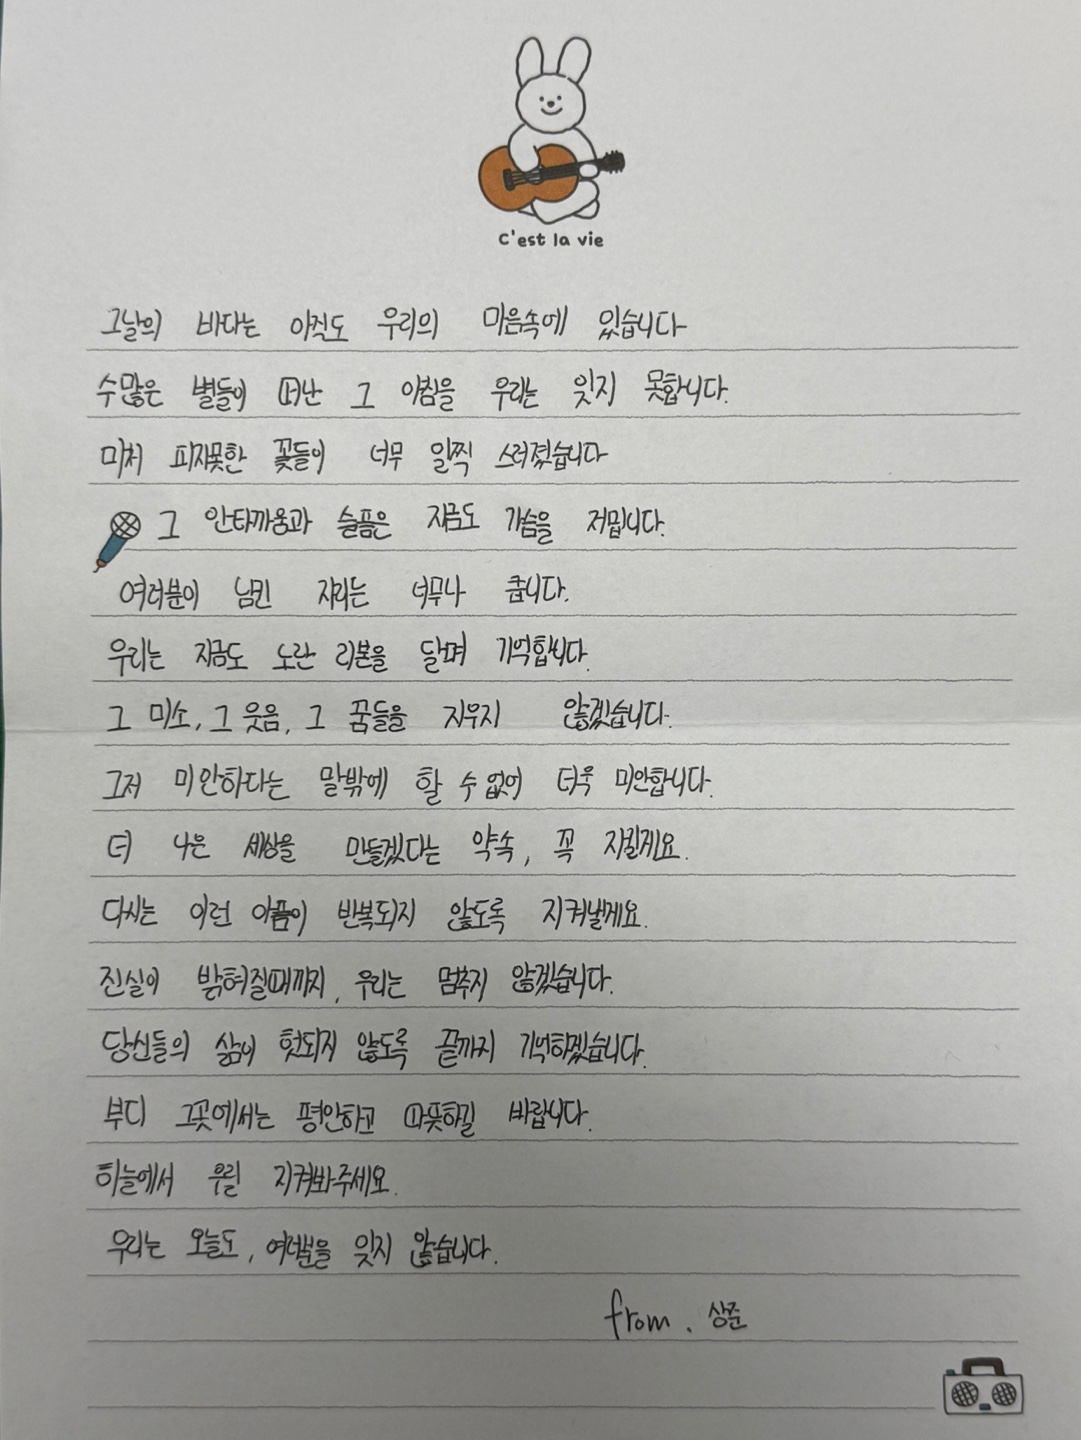 C'est la vie
그날의 바다는 아직도 우리의 마음속에 있습니다
수많은 별들이 떠난 그 아침을 우리는 잊지 못합니다.
미처 피지못한 꽃들이 너무 일찍 스러졌습니다
그 안타까움과 슬픔은 지금도 가슴을 저밉니다.
여러분이 남긴 자리는 너무나 큽니다.
우리는 지금도 노란 리본을 달며 기억합니다.
그 미소, 그 웃음, 그 꿈들을 지우지 않겠습니다.
그저 미안하다는 말밖에 할 수 없어 더욱 미안합니다.
더 나은 세상을 만들겠다는 약속, 꼭 지킬게요.
다시는 이런 아픔이 반복되지 않도록 지켜낼게요.
진실이 밝혀질때까지, 우리는 멈추지 않겠습니다.
당신들의 삶이 헛되지 않도록 끝까지 기억하겠습니다.
부디 그곳에서는 평안하고 따뜻하길 바랍니다.
하늘에서 우릴 지켜봐주세요.
우리는 오늘도, 여러분을 잊지 않습니다.
from. 상준